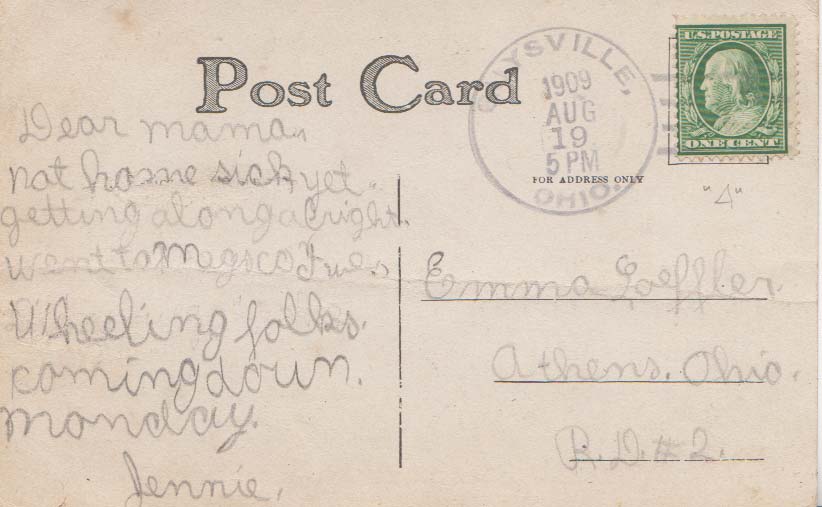 Post Card
YSVILLE,
1909
AUG
19
5 PM
OHIO.
U.S. POSTAGE
ONE CENT
FOR ADDRESS ONLY
"4"
Dear mama,
not home sick yet.
getting along alright.
went to Megs co Tue.
Wheeling folks.
coming down.
monday.
Jennie.
Emma Loeffler.
Athens. Ohio.
R.D.# 2.